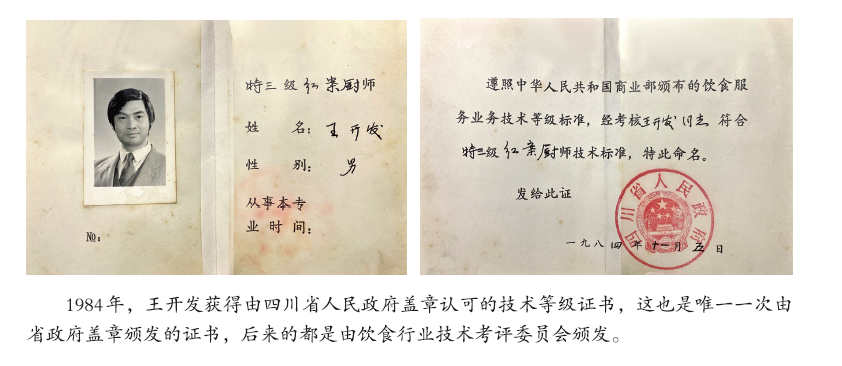 特三级红案厨师
姓 名：王开发
性 别：男
从事本专
业时间：
№：
遵照中华人民共和国商业部颁布的饮食服
务业务技术等级标准，经考核王开发同志符合
特三级红案厨师技术标准，特此命名。
发给此证
四川省人民政府
一九八四年十一月五日
1984年，王开发获得由四川省人民政府盖章认可的技术等级证书，这也是唯一一次由
省政府盖章颁发的证书，后来的都是由饮食行业技术考评委员会颁发。